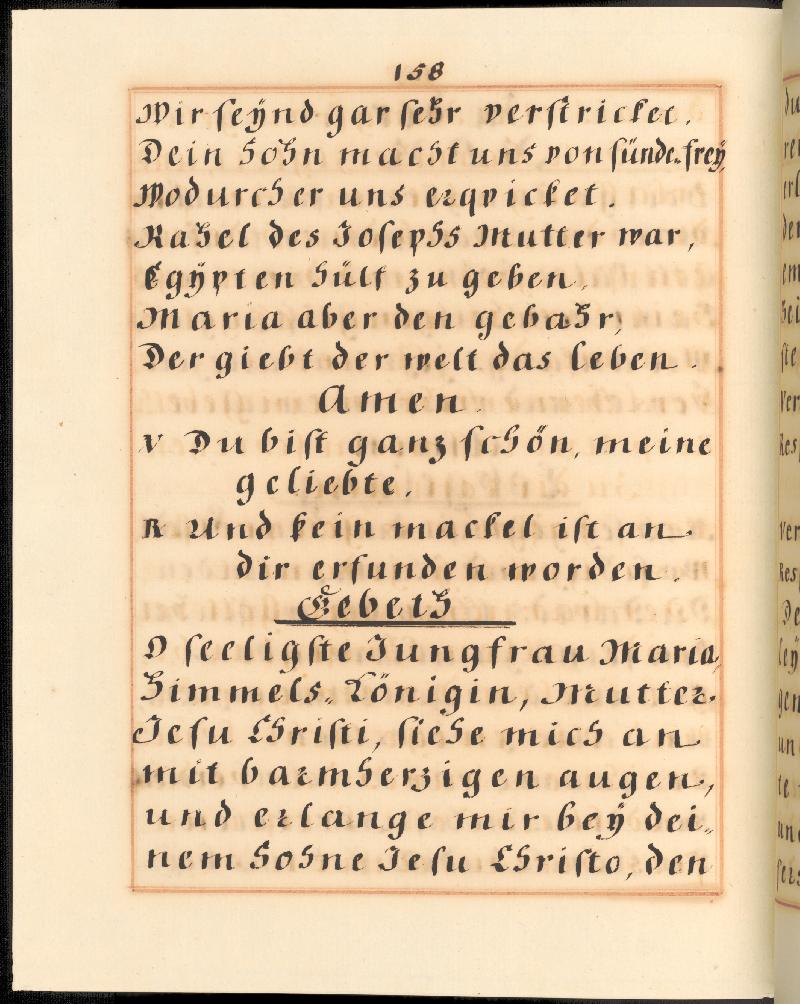 158
Wir ſeÿnd gar ſehr verſtricket.
Dein Sohn macht uns von ſünde-freÿ,
Wodurch er uns erqvicket.
Rahel des Joſephs Mutter war,
Egÿpten hülf zu geben,
Maria aber den gebahr,
Der giebt der welt das leben.
Amen.
V Du biſt ganz ſchön, meine
geliebte.
R Und kein mackel iſt an
dir erfunden worden.
Gebeth
O ſeeligſte Jungfrau Maria,
Himmels-Königin, Mutter
Jeſu Chriſti, ſiehe mich an
mit barmherzigen augen,
und erlange mir beÿ dei-
nem Sohne Jeſu Chriſto, den